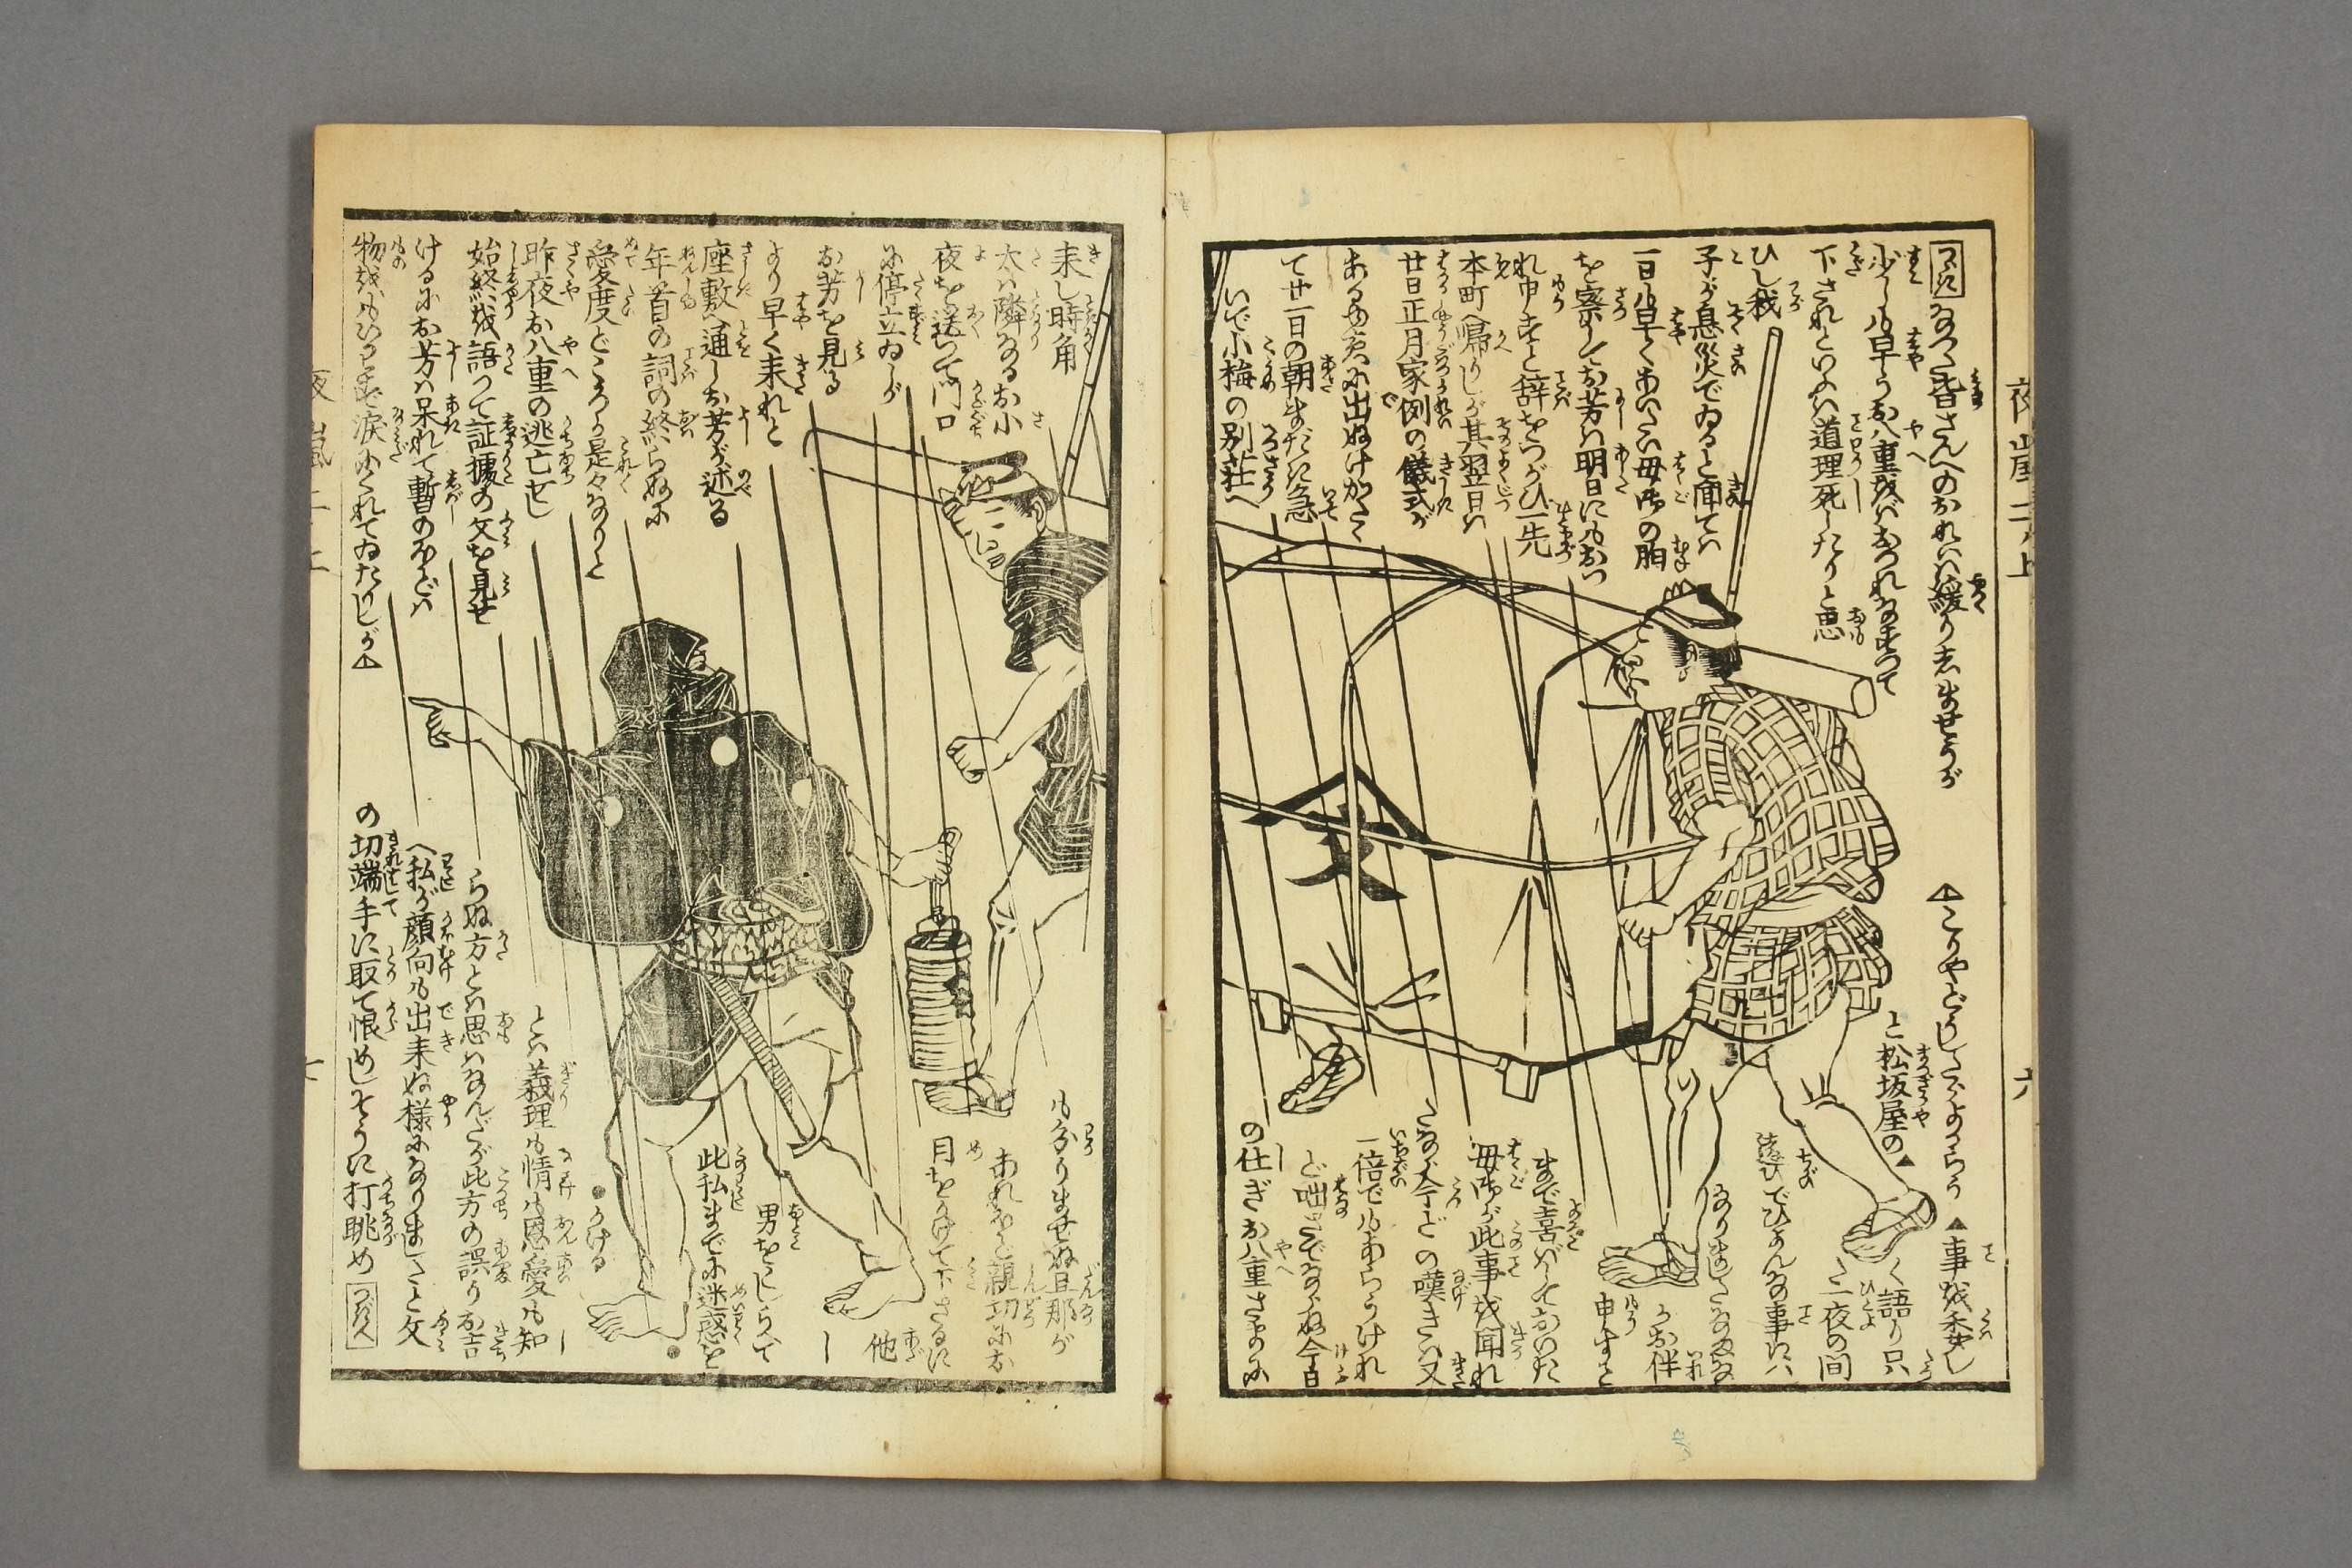 夜嵐二ノ上
六
つゞき
なつて皆さんへのおれいハ緩り志ませうが
少しも早うお八重をバおつれなすつて
下されといふハ道理死したりと思
ひし我
子が息災でゐると聞てハ
一日も早くあいたい母御の胸
を察してお芳ハ明日にもおつ
れ申すと辞をつがひ一先
本町へ帰りしが其翌日ハ
廿日正月家例の儀式が
て廿一日の朝まだきに急
いで小梅の別荘へ
△こりややどしたゞよからう
と松坂屋の▲
▲事を委し
く語り只
た一夜の間
遊びでひよんな事にハ
なりましたなな
申すと
まで喜バしておいた
母御が此事を聞れ
たなら今どの嘆きハ又
一倍でもあらうけれ
ど咄さでならぬ今日
の仕ぎお八重さまのに
来し時角
太ハ隣なるお小
夜を送つて門口
に停立ゐしが
お芳を見る
より早く来れと
座敷へ通しお芳が述る
年首の詞の終らぬに
愛度どころか是々なりと
昨夜お八重の逃亡せし
始終を語つて証拠の文を見せ
けるにお芳ハ呆れて暫のほどハ
物をもいはで涙にくれてゐたりしが△
も分りませぬ旦那が
あれほど親切にお
目をかけて下さるに
他し
男をこしらへて
此私までに迷惑を
●かける
とハ義理も情も恩愛も知
らぬ方とハ思ハなんだが此方の誤りお吉
へ私が顔向も出来ぬ様になりましたと文
の切端手に取て恨めしそうに打眺め
つゞく